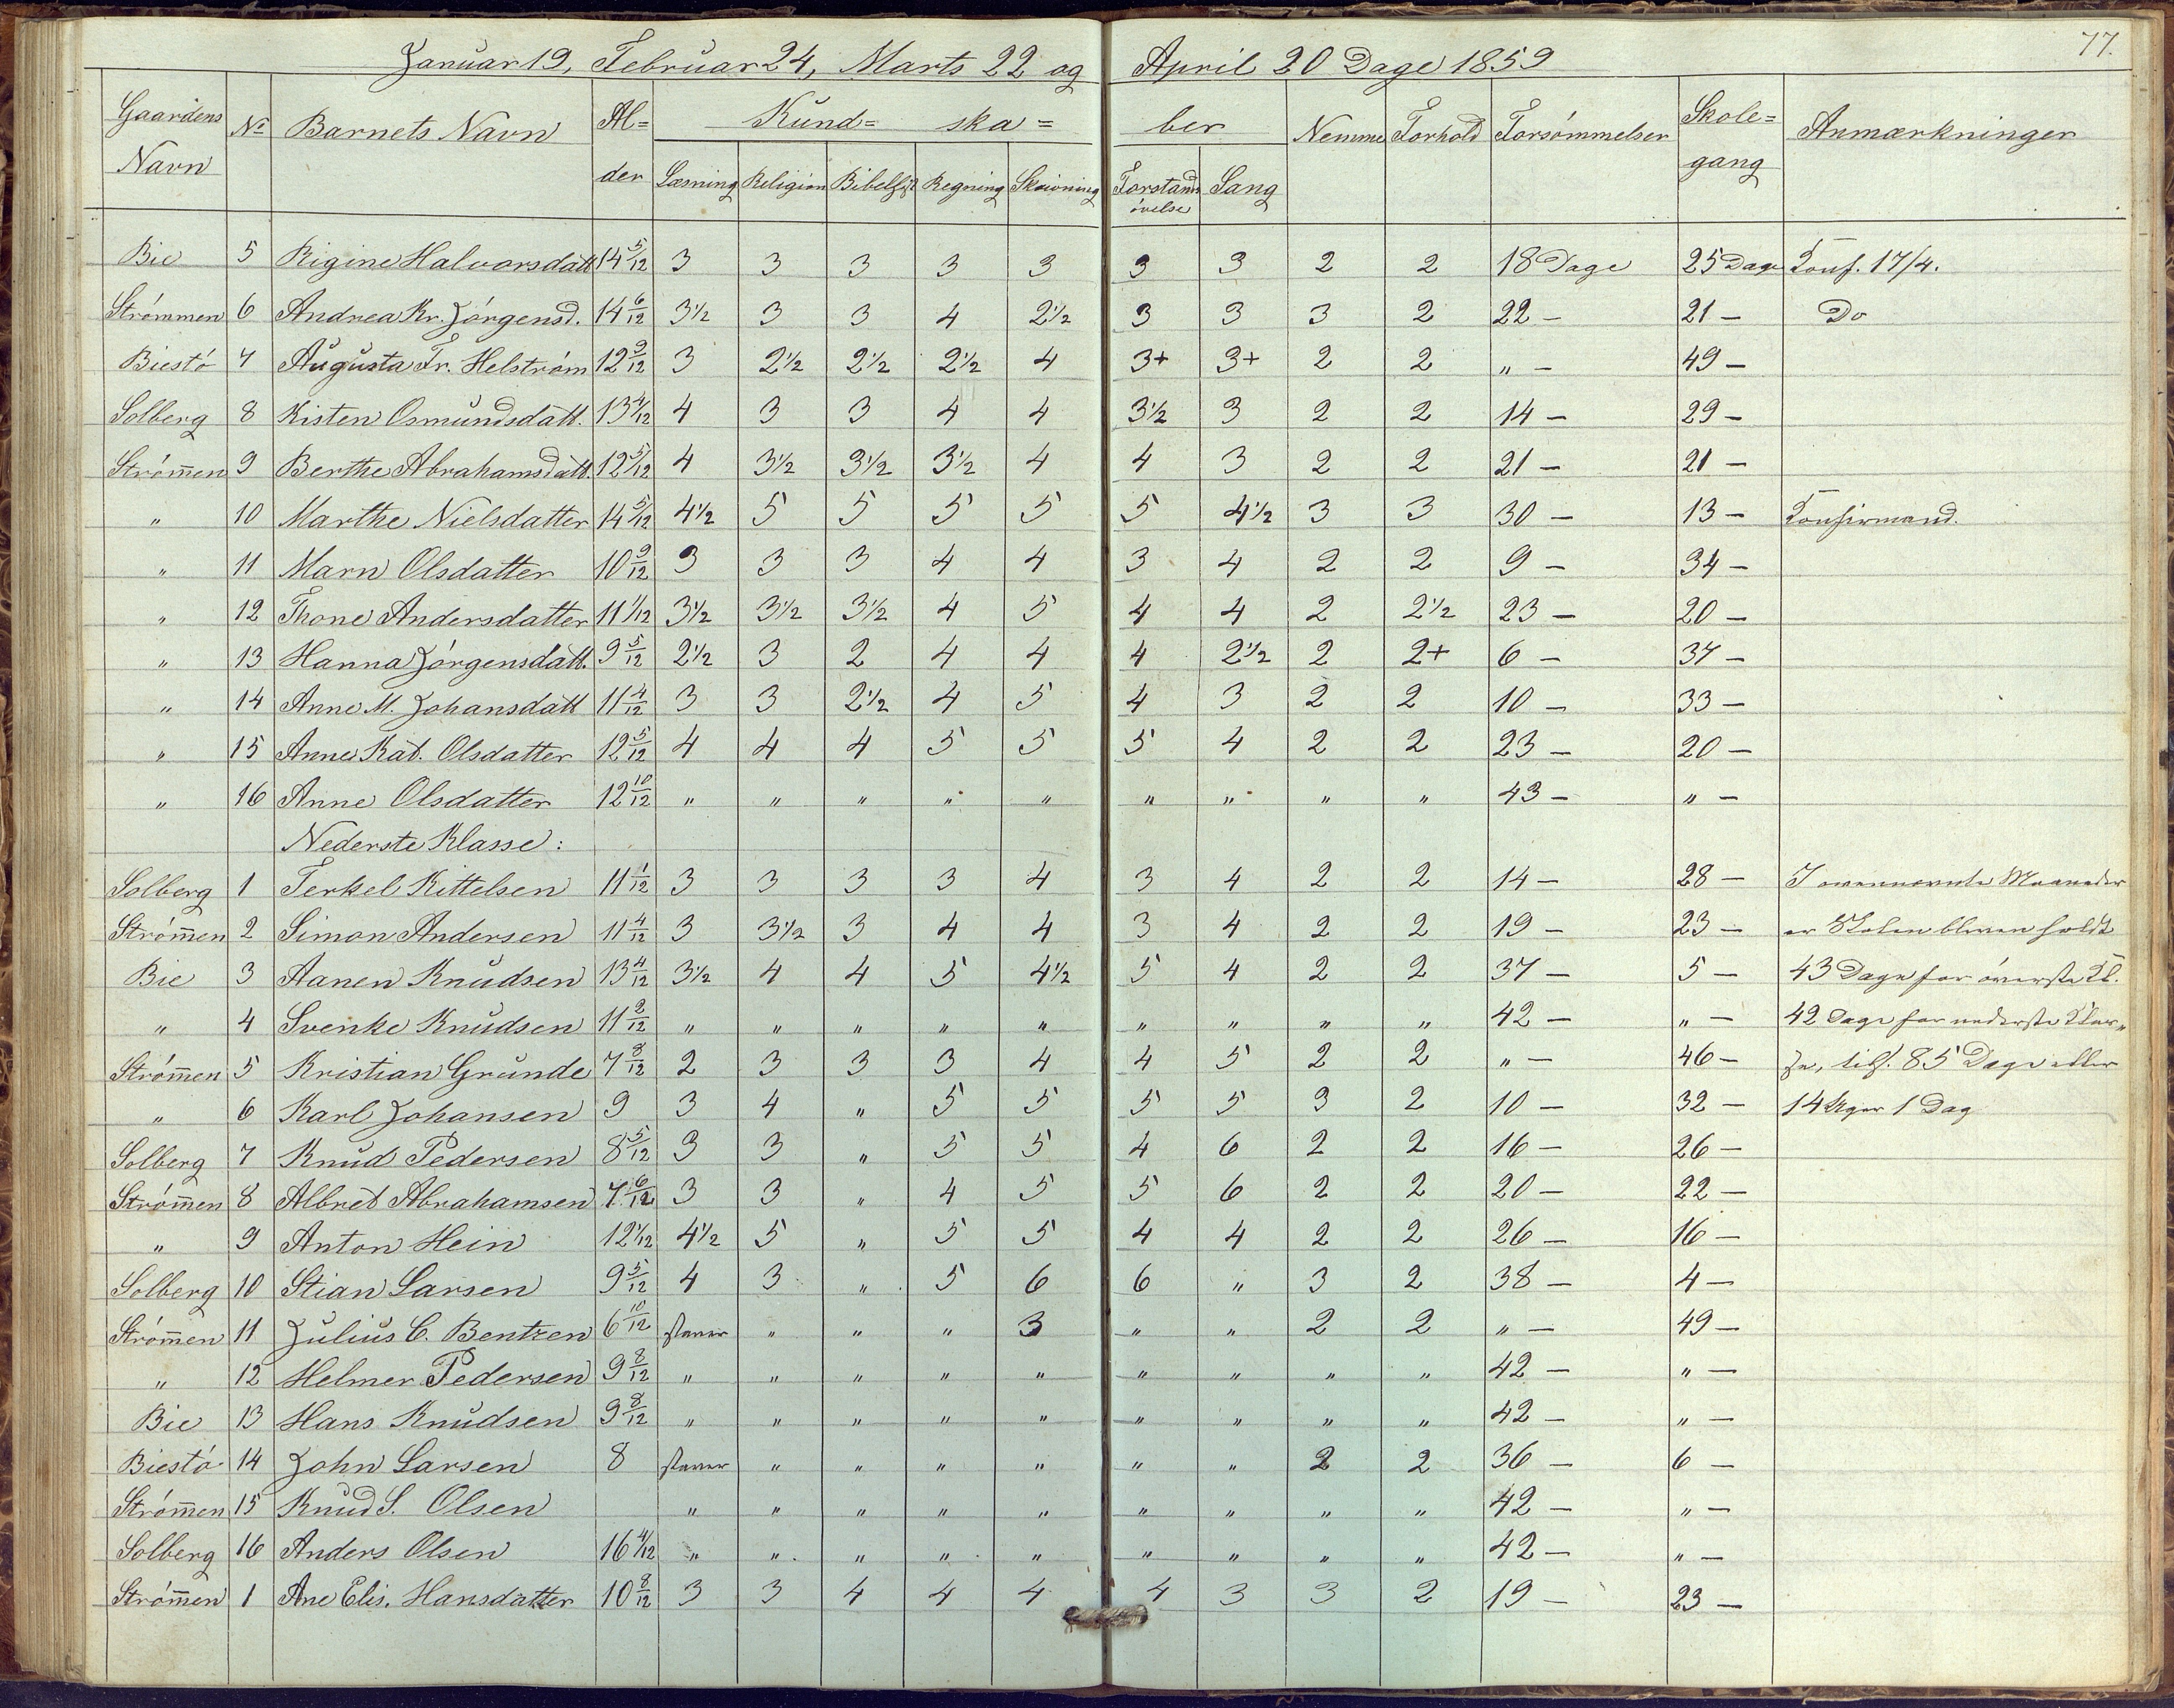 77.
Januar 19, Februar 24, Marts 22 og April 20 Dage 1859
Gaardens Navn | No | Barnets Navn | Al= der | Kund= ska= ber | Nemme | Forhold | Forsömmelser | Skole= gang | Anmærkninger
Læsning | Religion | Bibelhist | Regning | Skrivning | Forstands övelse | Sang
Bie 5 Rigine Halvorsdatt 14 5/12 3 3 3 3 3 3 3 2 2 18 Dage 25 Dage Konf. 17/4.
Strömmen 6 Andrea Kr. Jörgensd. 14 6/12 3½ 3 3 4 2½ 3 3 3 2 22 – 21 – Do
Biestö 7 Augusta Fr. Helström 12 9/12 3 2½ 2½ 2½ 4 3+ 3+ 2 2 " – 49 –
Solberg 8 Kisten Osmundsdatt. 13 4/12 4 3 3 4 4 3½ 3 2 2 14 – 29 –
Strömen 9 Berthe Abrahamsdatt. 12 5/12 4 3½ 3½ 3½ 4 4 3 2 2 21 – 21 –
" 10 Marthe Nielsdatter 14 5/12 4½ 5 5 5 5 5 4½ 3 3 30 – 13 – Konfirmand.
" 11 Marn Olsdatter 10 9/12 3 3 3 4 4 3 4 2 2 9 – 34 –
" 12 Thone Andersdatter 11 1/12 3½ 3½ 3½ 4 5 4 4 2 2½ 23 – 20 –
" 13 Hanna Jörgensdatt. 9 5/12 2½ 3 2 4 4 4 2½ 2 2+ 6 – 37 –
" 14 Anne M. Johansdatt 11 4/12 3 3 2½ 4 5 4 3 2 2 10 – 33 –
" 15 Anne Kat. Olsdatter 12 5/12 4 4 4 5 5 5 4 2 2 23 – 20 –
" 16 Anne Olsdatter 12 10/12 " " " " " " " " " 43 – " –
Nederste Klasse:
Solberg 1 Terkel Kittelsen 11 1/12 3 3 3 3 4 3 4 2 2 14 – 28 – I ovennævnte Maaneder
Strömen 2 Simon Andersen 11 4/12 3 3½ 3 4 4 3 4 2 2 19 – 23 – er Skolen bleven holdt
Bie 3 Aanen Knudsen 13 4/12 3½ 4 4 5 4½ 5 4 2 2 37 – 5 – 43 Dage for överste Kl.
" 4 Svenke Knudsen 11 2/12 " " " " " " " " " 42 – " – 42 Dage for nederste Klas„
Strömen 5 Kristian Grunde 7 8/12 2 3 3 3 4 4 5 2 2 " – 46 – se, tils. 85 Dage eller
" 6 Karl Johansen 9 3 4 " 5 5 5 5 3 2 10 – 32 – 14 Uger 1 Dag
Solberg 7 Knud Pedersen 8 5/12 3 3 " 5 5 4 6 2 2 16 – 26 –
Strömen 8 Albret Abrahamsen 7 6/12 3 3 " 4 5 5 6 2 2 20 – 22 –
" 9 Anton Hein 12 1/12 4½ 5 " 5 5 4 4 2 2 26 – 16 –
Solberg 10 Stian Larsen 9 5/12 4 3 " 5 6 6 " 3 2 38 – 4 –
Strömen 11 Julius C. Bentzen 6 10/12 staver " " " 3 " " 2 2 " – 49 –
" 12 Helmer Pedersen 9 8/12 " " " " " " " " " 42 – " –
Bie 13 Hans Knudsen 9 8/12 " " " " " " " " " 42 – " –
Biestö 14 John Larsen 8 staver " " " " " " 2 2 36 – 6 –
Strömen 15 Knud S. Olsen " " " " " " " " " 42 – " –
Solberg 16 Anders Olsen 16 4/12 " " " " " " " " " 42 – " –
Strömen 1 Ane Elis. Hansdatter 10 8/12 3 3 4 4 4 4 3 3 2 19 – 23 –